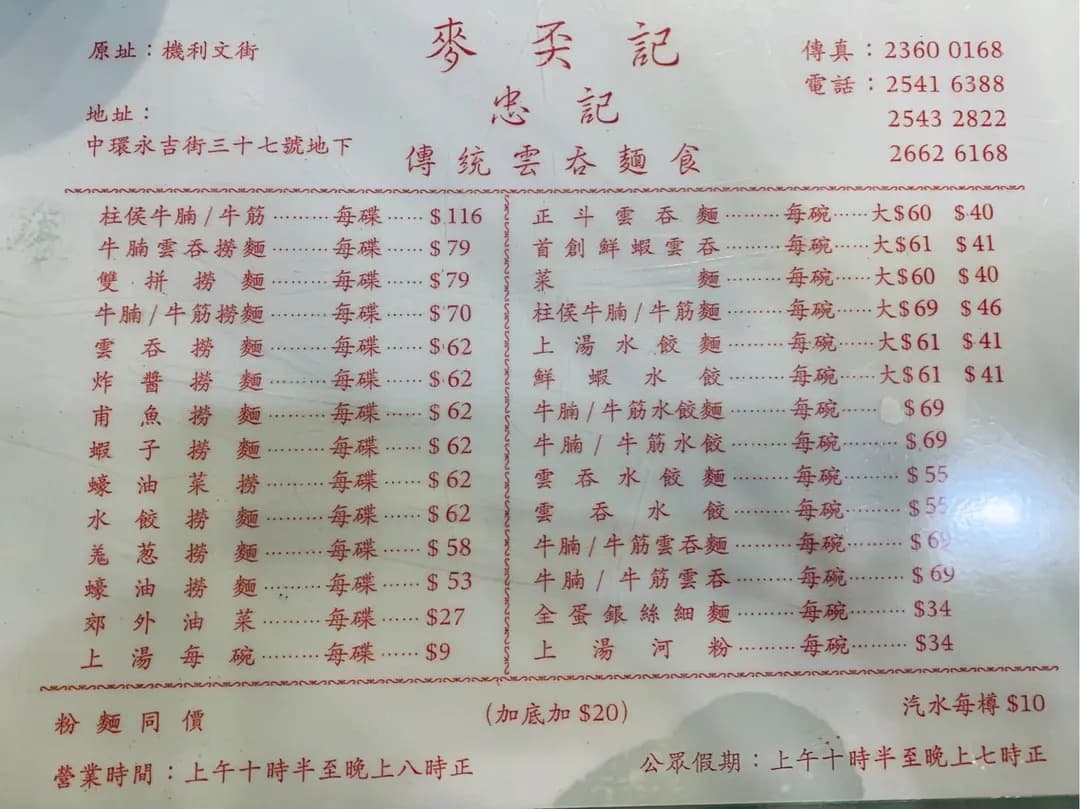 原址：機利文街
麥奀記
傳真：2360 0168
忠記
電話：2541 6388
地址：
2543 2822
中環永吉街三十七號地下
傳統雲吞麵食
2662 6168
柱侯牛腩/牛筋………每碟……$116
牛腩雲吞撈麵………每碟……$79
雙拼撈麵………每碟……$79
牛腩/牛筋撈麵………每碟……$70
雲吞撈麵………每碟……$62
炸醬撈麵………每碟……$62
甫魚撈麵………每碟……$62
蝦子撈麵………每碟……$62
蠔油菜撈………每碟……$62
水餃撈麵………每碟……$62
羗蔥撈麵………每碟……$58
蠔油撈麵………每碟……$53
郊外油菜………每碟……$27
上湯每碗………每碟……$9
正斗雲吞麵………每碗……大$60 $40
首創鮮蝦雲吞………每碗……大$61 $41
菜麵………每碗……大$60 $40
柱侯牛腩/牛筋麵………每碗……大$69 $46
上湯水餃麵………每碗……大$61 $41
鮮蝦水餃………每碗……大$61 $41
牛腩/牛筋水餃麵………每碗……$69
牛腩/牛筋水餃………每碗………$69
雲吞水餃麵………每碗………$55
雲吞水餃………每碗………$55
牛腩/牛筋雲吞麵………每碗………$69
牛腩/牛筋雲吞………每碗………$69
全蛋銀絲細麵………每碗………$34
上湯河粉………每碗………$34
粉麵同價
(加底加 $20)
汽水每樽 $10
營業時間：上午十時半至晚上八時正
公眾假期：上午十時半至晚上七時正